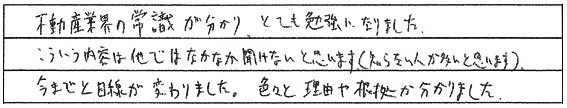 不動産業界の常識が分かり、とても勉強になりました.
こういう内容は他ではなかなか聞けないと思います(知らない人が多いと思います).
今までと目線が変わりました。色々と理由や根拠が分かりました.